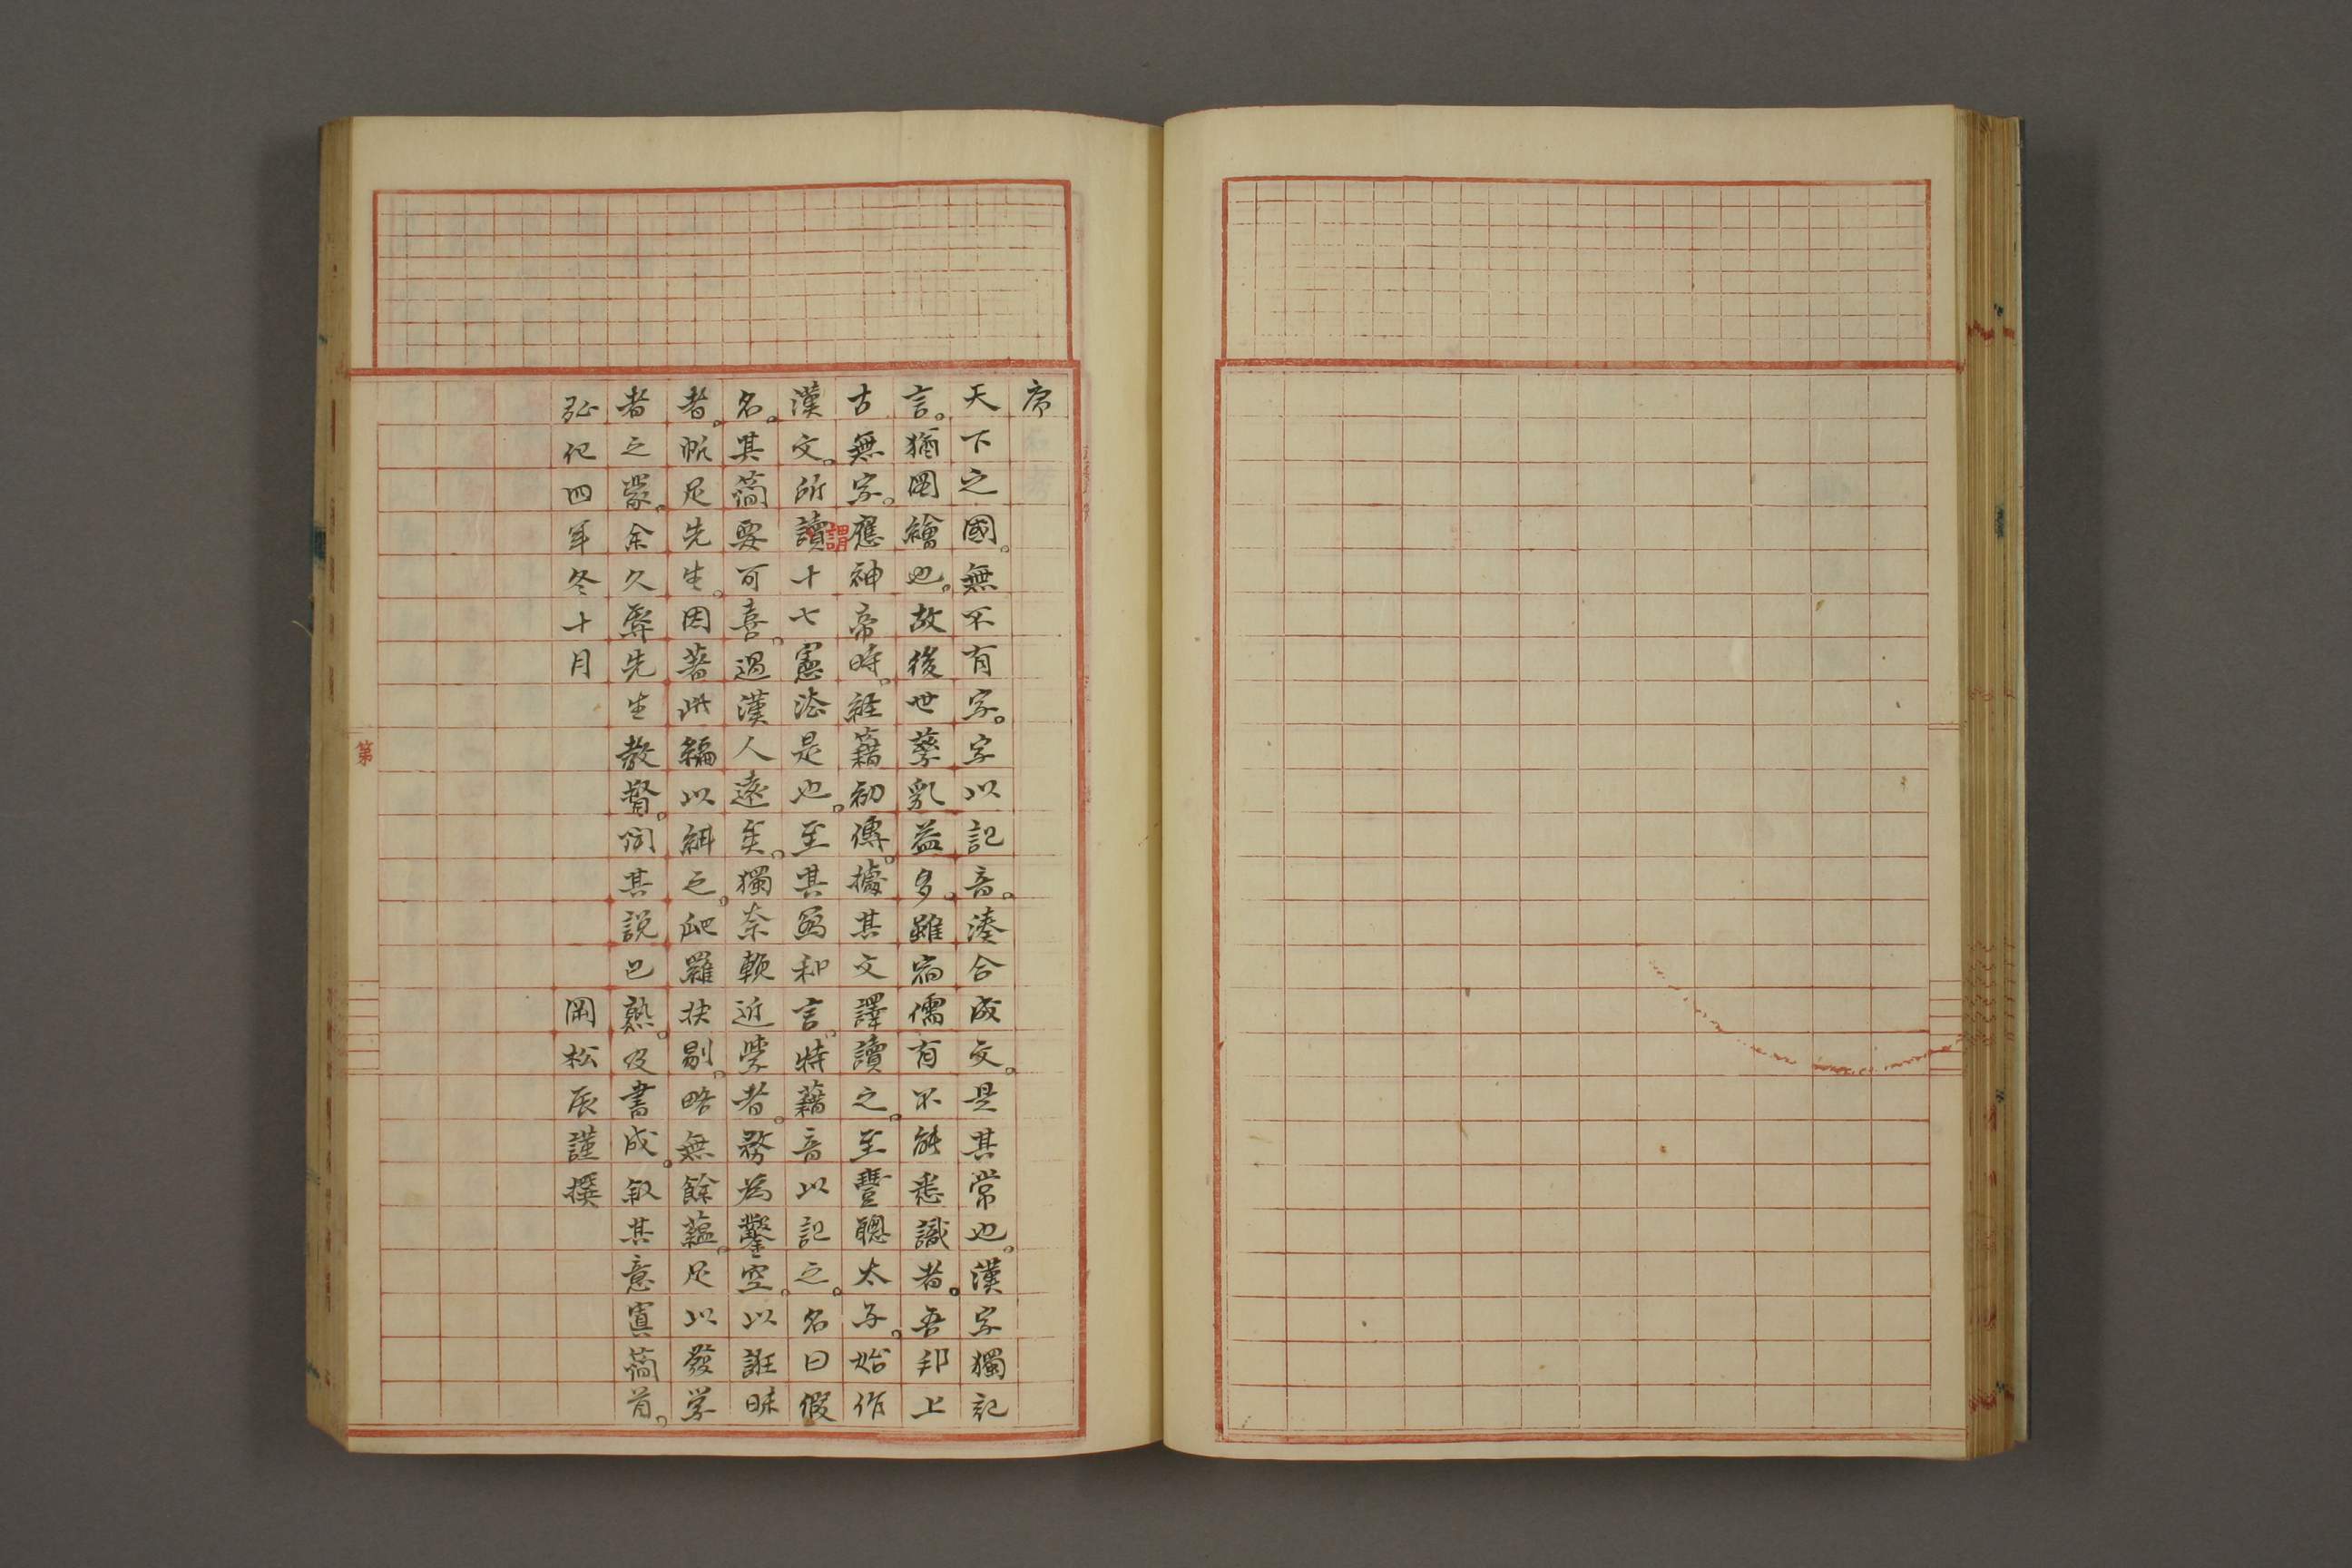 序
天下之國。無不有字。字以記音。湊合成文。是其常也。漢字獨記
言。猶圖繪也。故後世孳乳益多。雖宿儒有不能悉識者。吾邦上
古無字。應神帝時。經籍初傳。據其文譯讀之。至豐聰太子。始作
漢文。所讀十七憲法是也。至其寫和言。特藉音以記之。名曰假
謂
名。其簡要可喜。過漢人遠矣。獨奈輓近學者。務為鑿空。以誑昧
者。帆足先生。因著此編以糾之。爬羅抉剔。略無餘蘊。足以發学
者之蒙。余久辱先生教督。聞其說已熟。及書成。叙其意寘簡首。
弘化四年冬十月 岡松辰謹撰
第